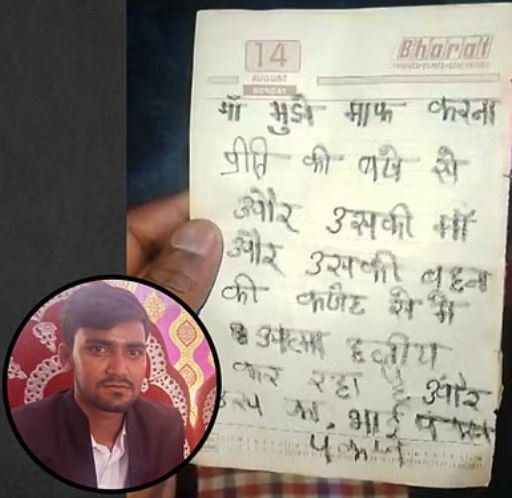 14
AUGUST
SUNDAY
Bharat
माँ मुझे माफ करना
प्रीति की वजे से
और उसकी माँ
और उसकी बहन
की वजह से मैं
हत्या
कर रहा हूँ और
उस का, भाई